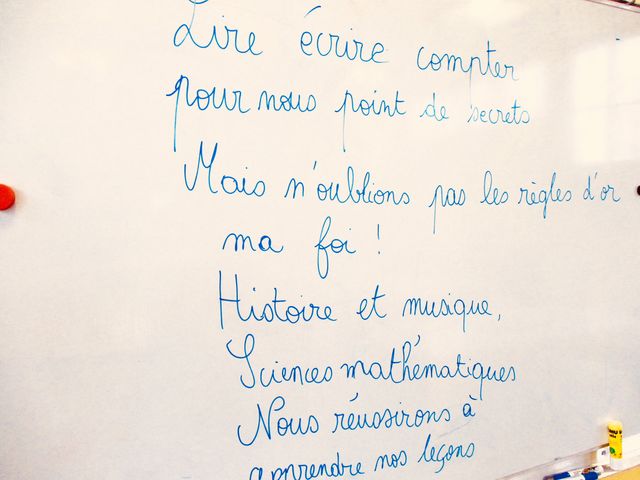 Lire écrire compter
pour nous point de secrets
Mais n'oublions pas les règles d'or
ma foi !
Histoire et musique,
Sciences mathématiques
Nous réussirons à
apprendre nos leçons